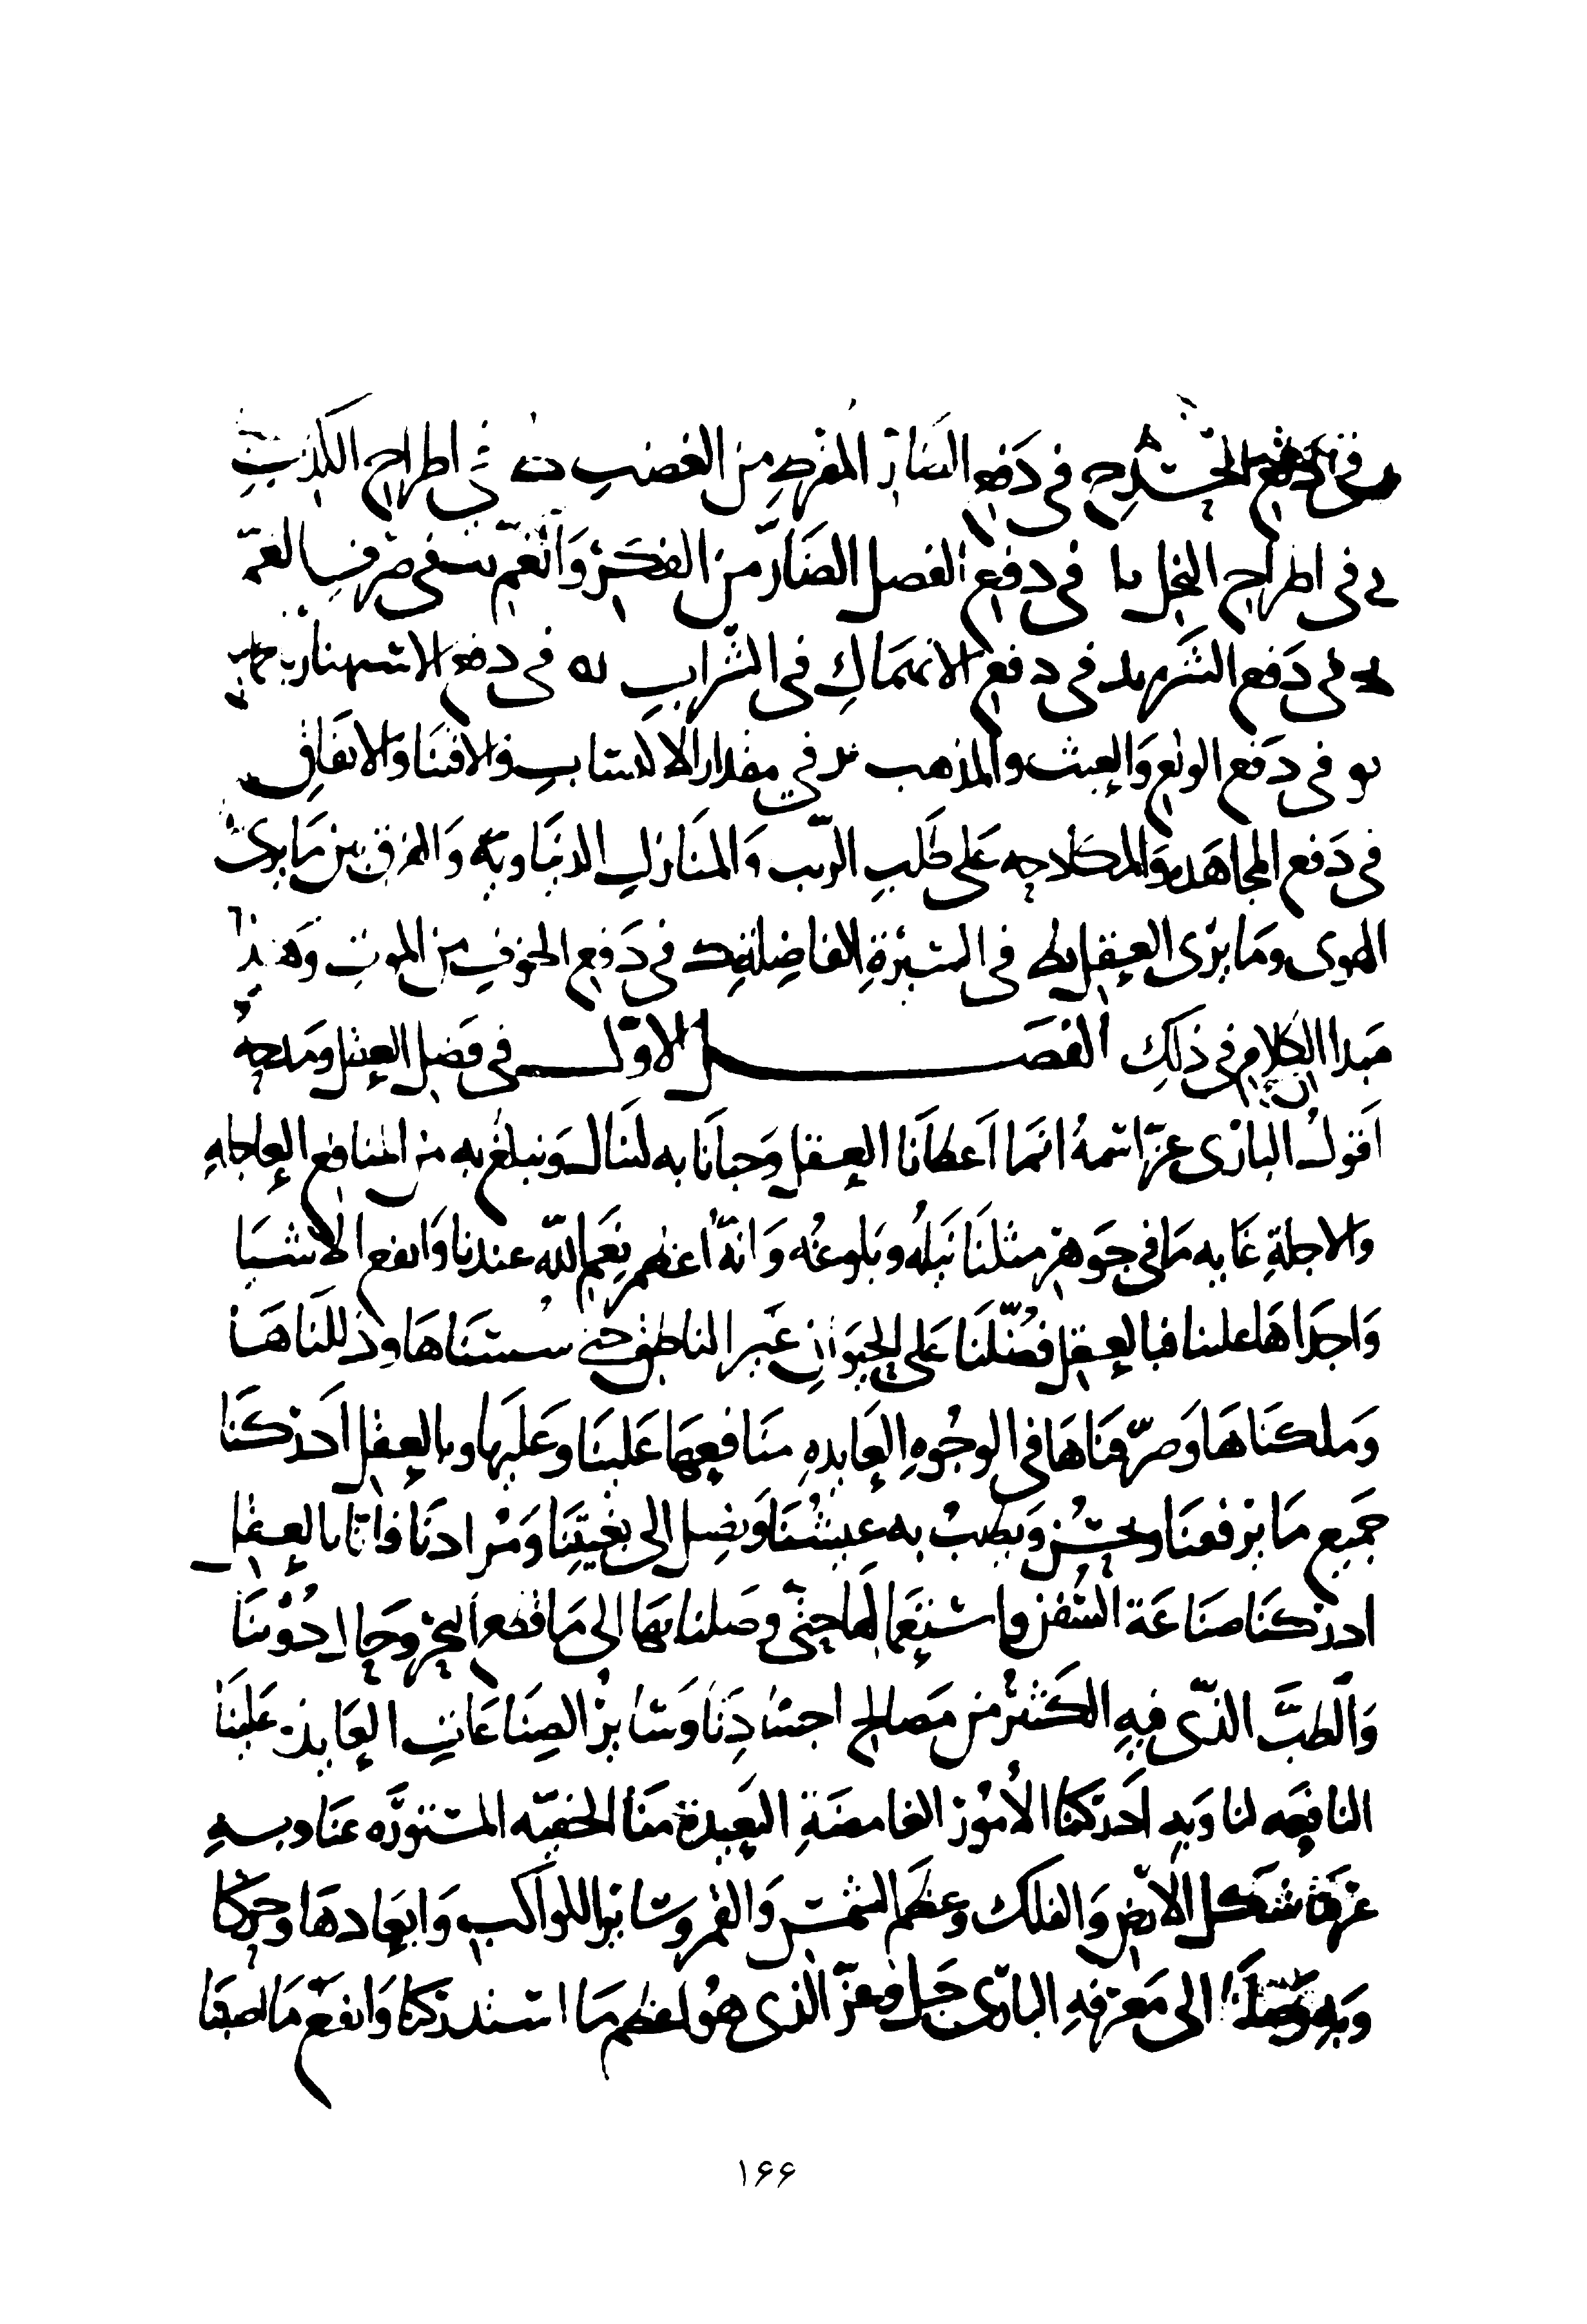 في دفع الحسد ح في دفع الضار المفرط من الغضب ط في اطراح الكذب
ي في اطراح البخل يا في دفع الفضل الضار من الفكر والغم يب في صرف الغم
يج في دفع الشره يد في دفع الانهماك في الشراب يه في دفع الاستهتار بالجماع
يو في دفع الولع والعبث والمذهب يز في مقدار الاكتساب والاقتنا والانفاق
في دفع المجاهدة والمكادحة على طلب الرتب والمنازل الدنياوية والفرق بين ما يرى
الهوى وما يرى العقل يط في السيرة الفاضلة ك في دفع الخوف من الموت وهذا
مبدا الكلام في ذلك الفصل الاول في فضل العقل ومدحه
اقول ان البارى عز اسمه انما اعطانا العقل وحبانا به لننال ونبلغ به من المنافع العاجلة
والاجلة غاية ما في جوهر مثلنا نيله وبلوغه وانه اعظم نعم الله عندنا وانفع الاشيا
واجداها علينا فبالعقل فضلنا على الحيوان غير الناطق حتى سسناها وذللناها
وملكناها وصرفناها في الوجوه العايدة منافعها علينا وعليها وبالعقل ادركنا
جميع ما يرفعنا ويحسن ويطيب به عيشنا ونصل الى بغيتنا ومرادنا فانا بالعقل
ادركنا صناعة السفن واستعمالها حتى وصلنا بها الى ما قطع البحر وحال دوننا
والطب الذي فيه الكثير من مصالح اجسادنا وساير الصناعات العايدة علينا
النافعه لنا وبه ادركنا الأمور الغامضة البعيدة منا الخفيه المستورة عنا وبه
عرفنا شكل الارض والفلك وعظم الشمس والقمر وساير الكواكب وابعادها وحركاتها
وبه وصلنا الى معرفة البارى جل وعز الذي هو اعظم ما استدركنا وانفع ما اصبنا
۱۶۶